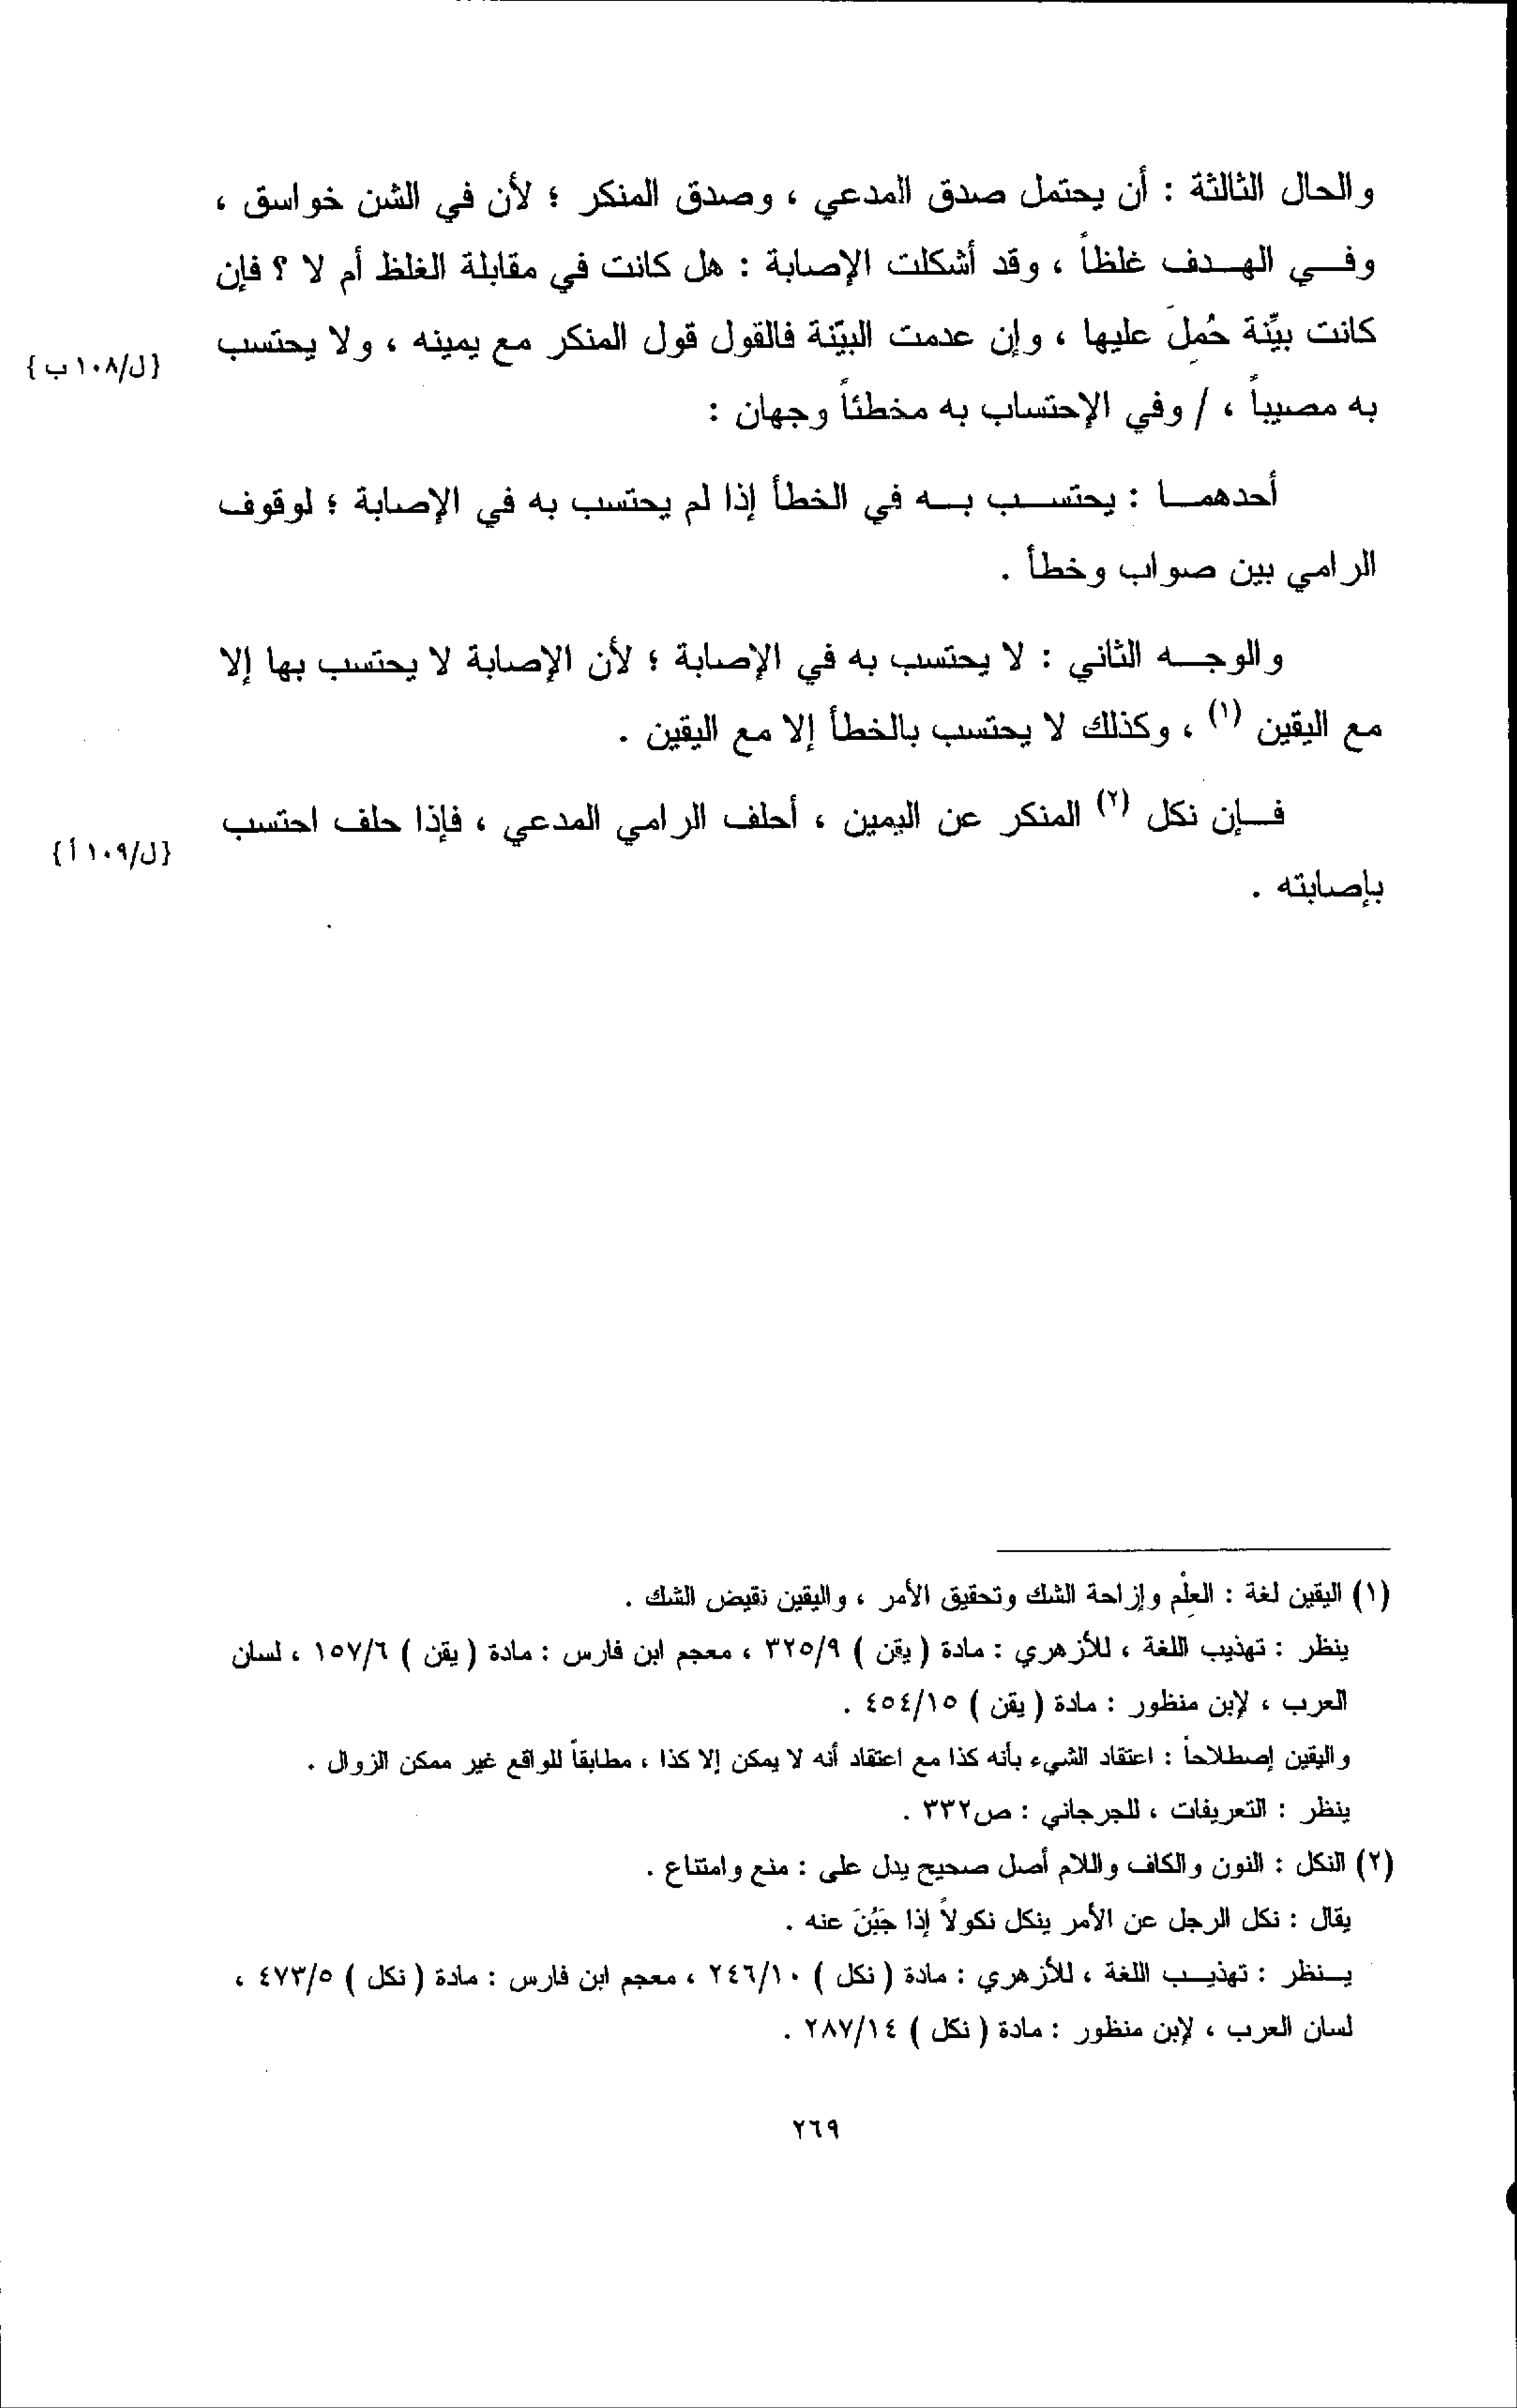 والحال الثالثة : أن يحتمل صدق المدعي ، وصدق المنكر ؛ لأن في الشن خواسق ،
وفي الهدف غلظاً ، وقد أشكلت الإصابة : هل كانت في مقابلة الغلظ أم لا ؟ فإن
كانت بيِّنة حُمِلَ عليها ، وإن عدمت البيّنة فالقول قول المنكر مع يمينه ، ولا يحتسب
{ل/١٠٨ب}
به مصيباً ، / وفي الإحتساب به مخطئاً وجهان :
أحدهما : يحتسب به في الخطأ إذا لم يحتسب به في الإصابة ؛ لوقوف
الرامي بين صواب وخطأ .
والوجه الثاني : لا يحتسب به في الإصابة ؛ لأن الإصابة لا يحتسب بها إلا
مع اليقين (١) ، وكذلك لا يحتسب بالخطأ إلا مع اليقين .
فإن نكل (٢) المنكر عن اليمين ، أحلف الرامي المدعي ، فإذا حلف احتسب
{ل/١٠٩أ}
بإصابته .
(١) اليقين لغة : العِلْم وإزاحة الشك وتحقيق الأمر ، واليقين نقيض الشك .
ينظر : تهذيب اللغة ، للأزهري : مادة ( يقن ) ٣٢٥/٩ ، معجم ابن فارس : مادة ( يقن ) ١٥٧/٦ ، لسان
العرب ، لإبن منظور : مادة ( يقن ) ٤٥٤/١٥ .
واليقين إصطلاحاً : اعتقاد الشيء بأنه كذا مع اعتقاد أنه لا يمكن إلا كذا ، مطابقاً للواقع غير ممكن الزوال .
ينظر : التعريفات ، للجرجاني : ص٣٣٢ .
(٢) النكل : النون والكاف واللام أصل صحيح يدل على : منع وامتناع .
يقال : نكل الرجل عن الأمر ينكل نكولاً إذا جَبُنَ عنه .
ينظر : تهذيب اللغة ، للأزهري : مادة ( نكل ) ٢٤٦/١٠ ، معجم ابن فارس : مادة ( نكل ) ٤٧٣/٥ ،
لسان العرب ، لإبن منظور : مادة ( نكل ) ٢٨٧/١٤ .
٢٦٩